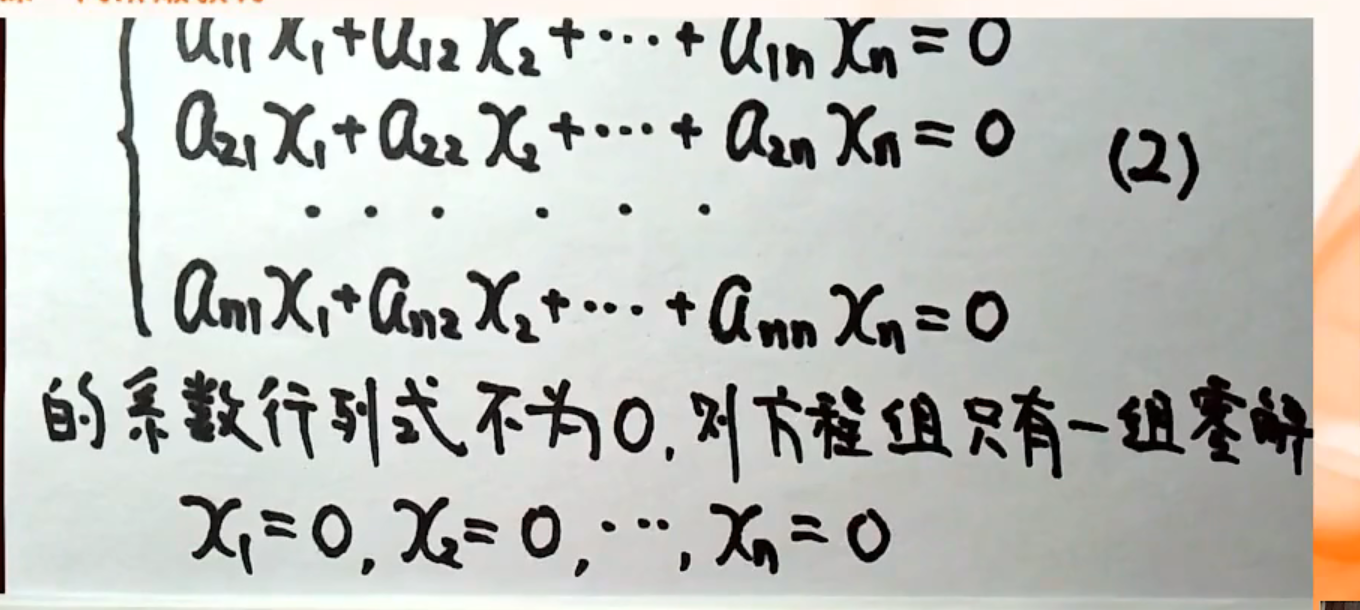 a₁₁x₁+a₁₂x₂+···+a₁ₙxₙ=0
a₂₁x₁+a₂₂x₂+···+a₂ₙxₙ=0 (2)
· · · · · ·
aₙ₁x₁+aₙ₂x₂+···+aₙₙxₙ=0
的系数行列式不为0,则方程组只有一组零解
x₁=0, x₂=0, ···, xₙ=0